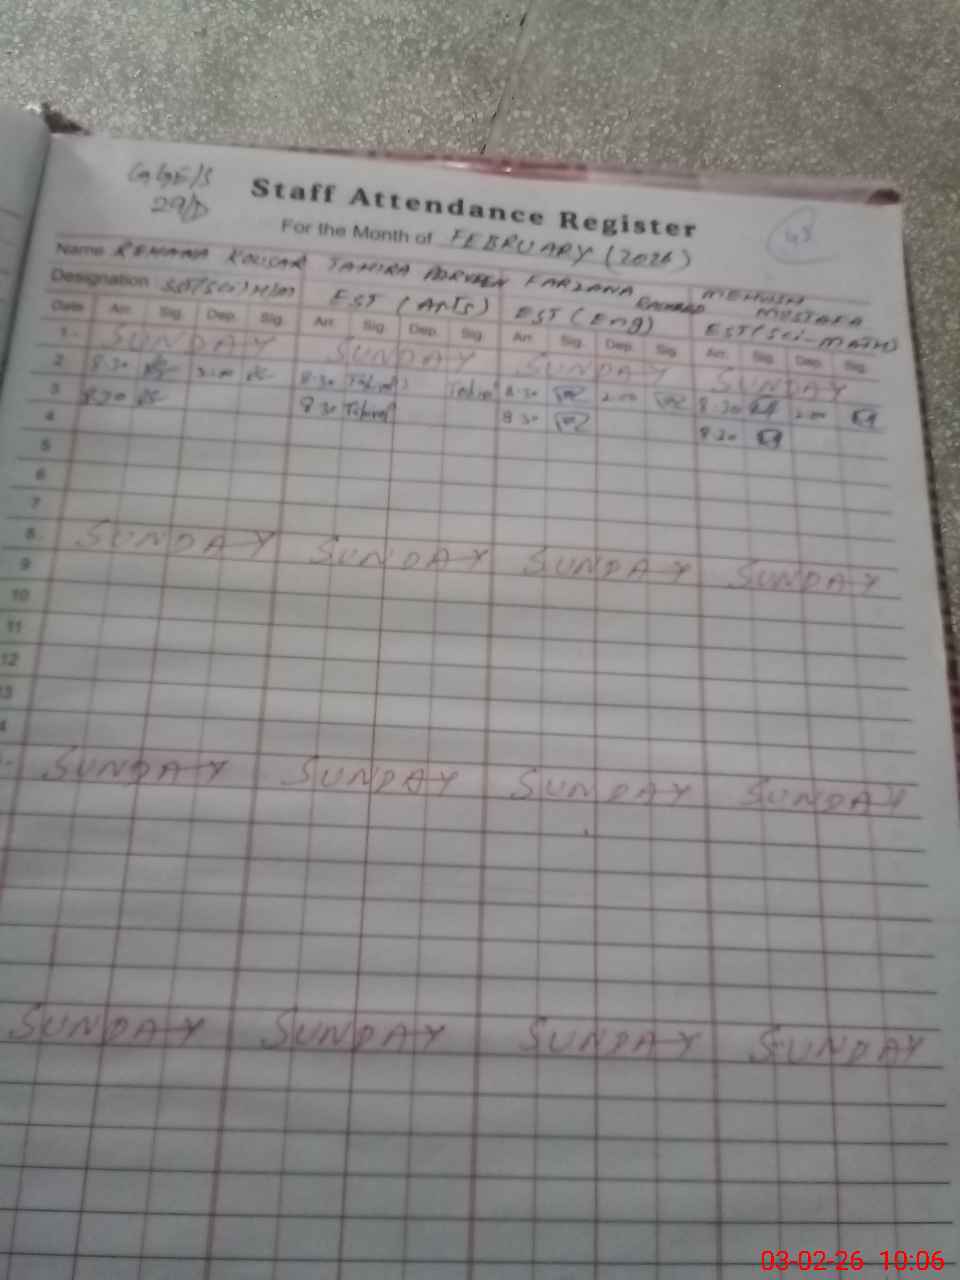 29/D
Staff Attendance Register
48
For the Month of FEBRUARY (2026)
Name REHANA KOUSAR TAHIRA PARVEEN FARZANA RASHEED MEHWISH MUSTAFA
Designation EST (Arts) EST (Eng) EST (Sci-MATH)
Date Arr. Sig. Dep. Sig. Arr. Sig. Dep. Sig. Arr. Sig. Dep. Sig. Arr. Sig. Dep. Sig.
1 SUNDAY SUNDAY SUNDAY SUNDAY
2 8.30 8.30 8.30 2.00 8.30 2.00
3 8.30 8.30 8.30 8.30
4
5
6
7
8 SUNDAY SUNDAY SUNDAY SUNDAY
9
10
11
12
13
4
SUNDAY SUNDAY SUNDAY SUNDAY
SUNDAY SUNDAY SUNDAY SUNDAY
03-02-26 10:06